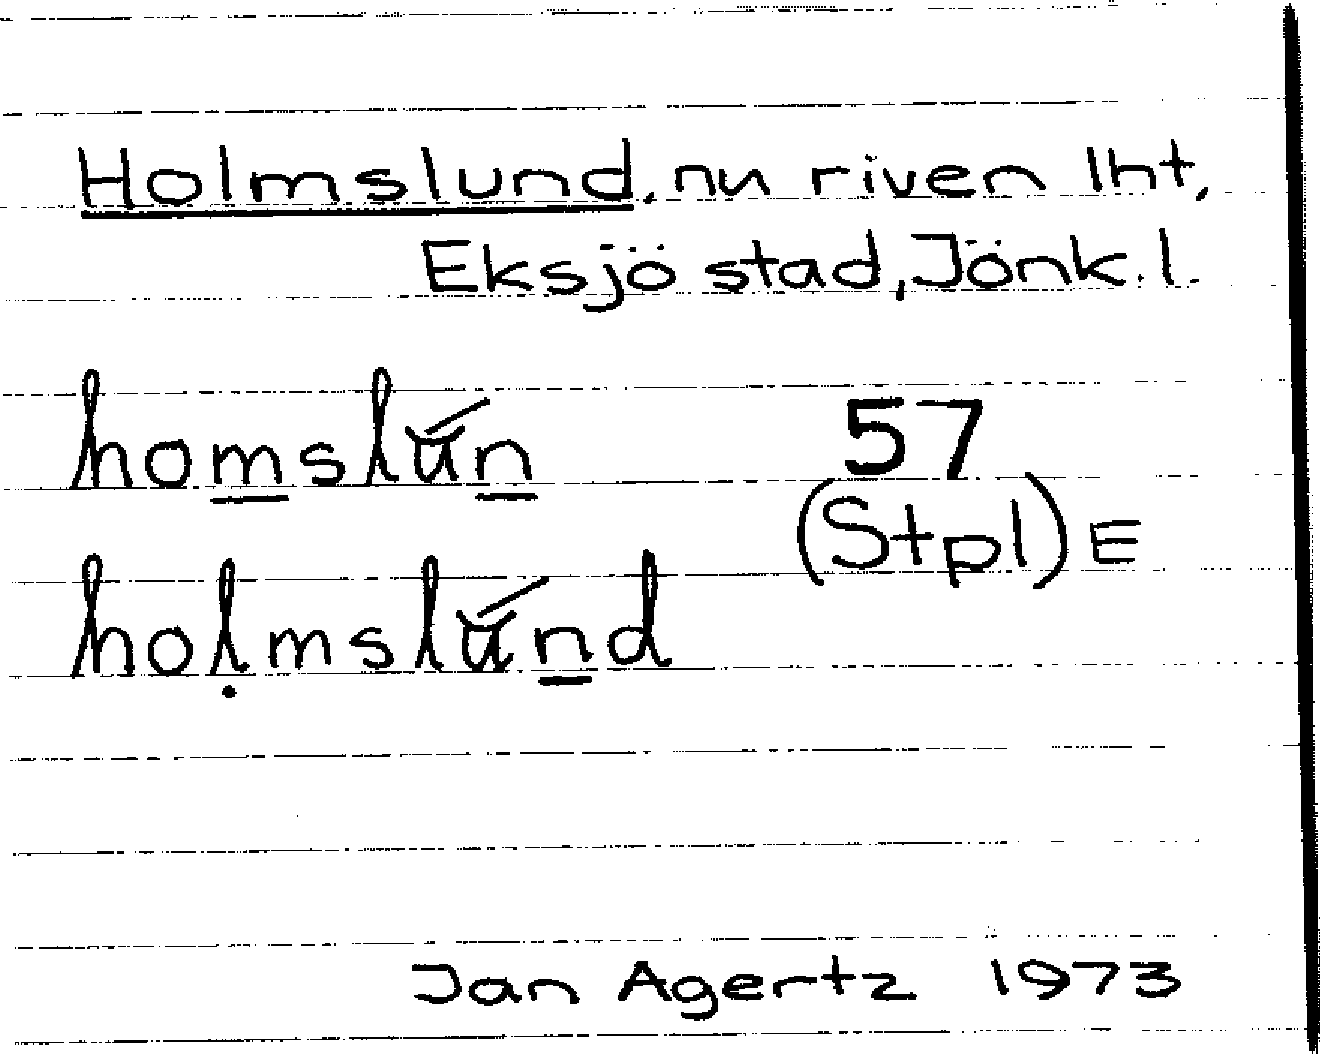 Holmslund, nu riven lht,
Eksjö stad, Jönk. l.
homslŭ́n 57
(Stpl) E
hoḷmslŭ́nd
Jan Agertz 1973